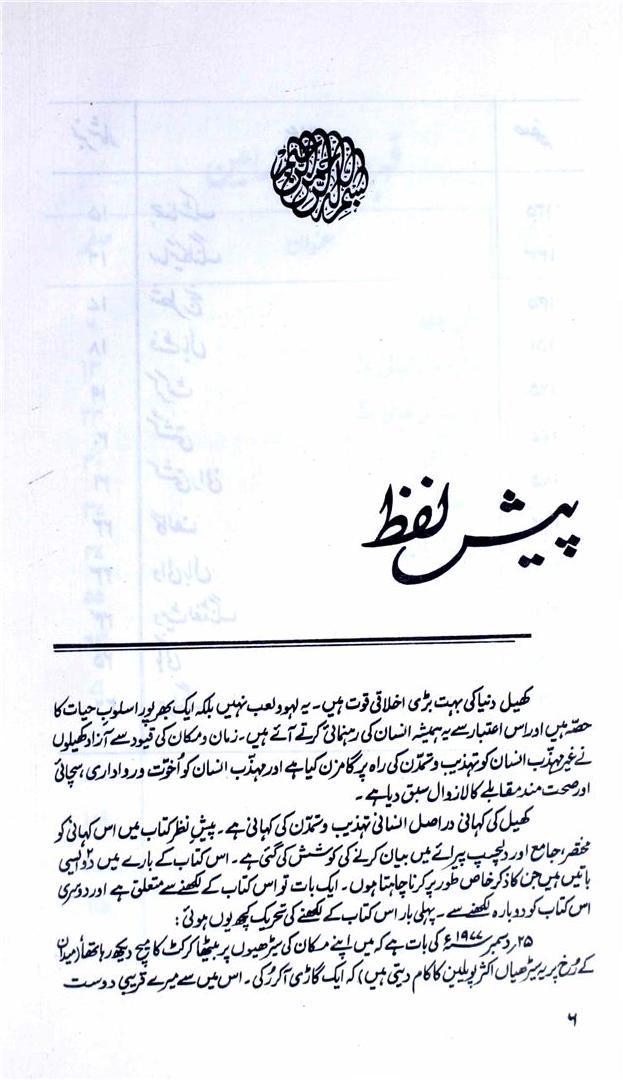 بسم اللہ الرحمن الرحیم
پیش لفظ
کھیل دنیا کی بہت بڑی اخلاقی قوت ہیں۔ یہ لہو ولعب نہیں بلکہ ایک بھرپور اسلوبِ حیات کا
حصّہ ہیں اور اس اعتبار سے یہ ہمیشہ انسان کی رہنمائی کرتے آئے ہیں۔ زمان و مکان کی قیود سے آزاد کھیلوں
نے غیر مہذّب انسان کو تہذیب و تمدّن کی راہ پر گامزن کیا ہے اور مہذّب انسان کو اُخوّت و رواداری، سچائی
اور صحت مند مقابلے کا لازوال سبق دیا ہے۔
کھیل کی کہانی دراصل انسانی تہذیب و تمدّن کی کہانی ہے۔ پیشِ نظر کتاب میں اس کہانی کو
مختصر، جامع اور دلچسپ پیرائے میں بیان کرنے کی کوشش کی گئی ہے۔ اس کتاب کے بارے میں دو ایسی
باتیں ہیں جن کا ذکر خاص طور پر کرنا چاہتا ہوں۔ ایک بات تو اس کتاب کے لکھنے سے متعلق ہے اور دوسری
اس کتاب کو دوبارہ لکھنے سے۔ پہلی بار اس کتاب کے لکھنے کی تحریک کچھ یوں ہوئی:
۲۵ دسمبر ۱۹۷۷ء کی بات ہے کہ میں اپنے مکان کی سیڑھیوں پر بیٹھا کرکٹ کا میچ دیکھ رہا تھا (میدان
کے رُخ پر یہ سیڑھیاں اکثر پویلین کا کام دیتی ہیں) کہ ایک گاڑی آکر رُکی۔ اس میں سے میرے قریبی دوست
۶